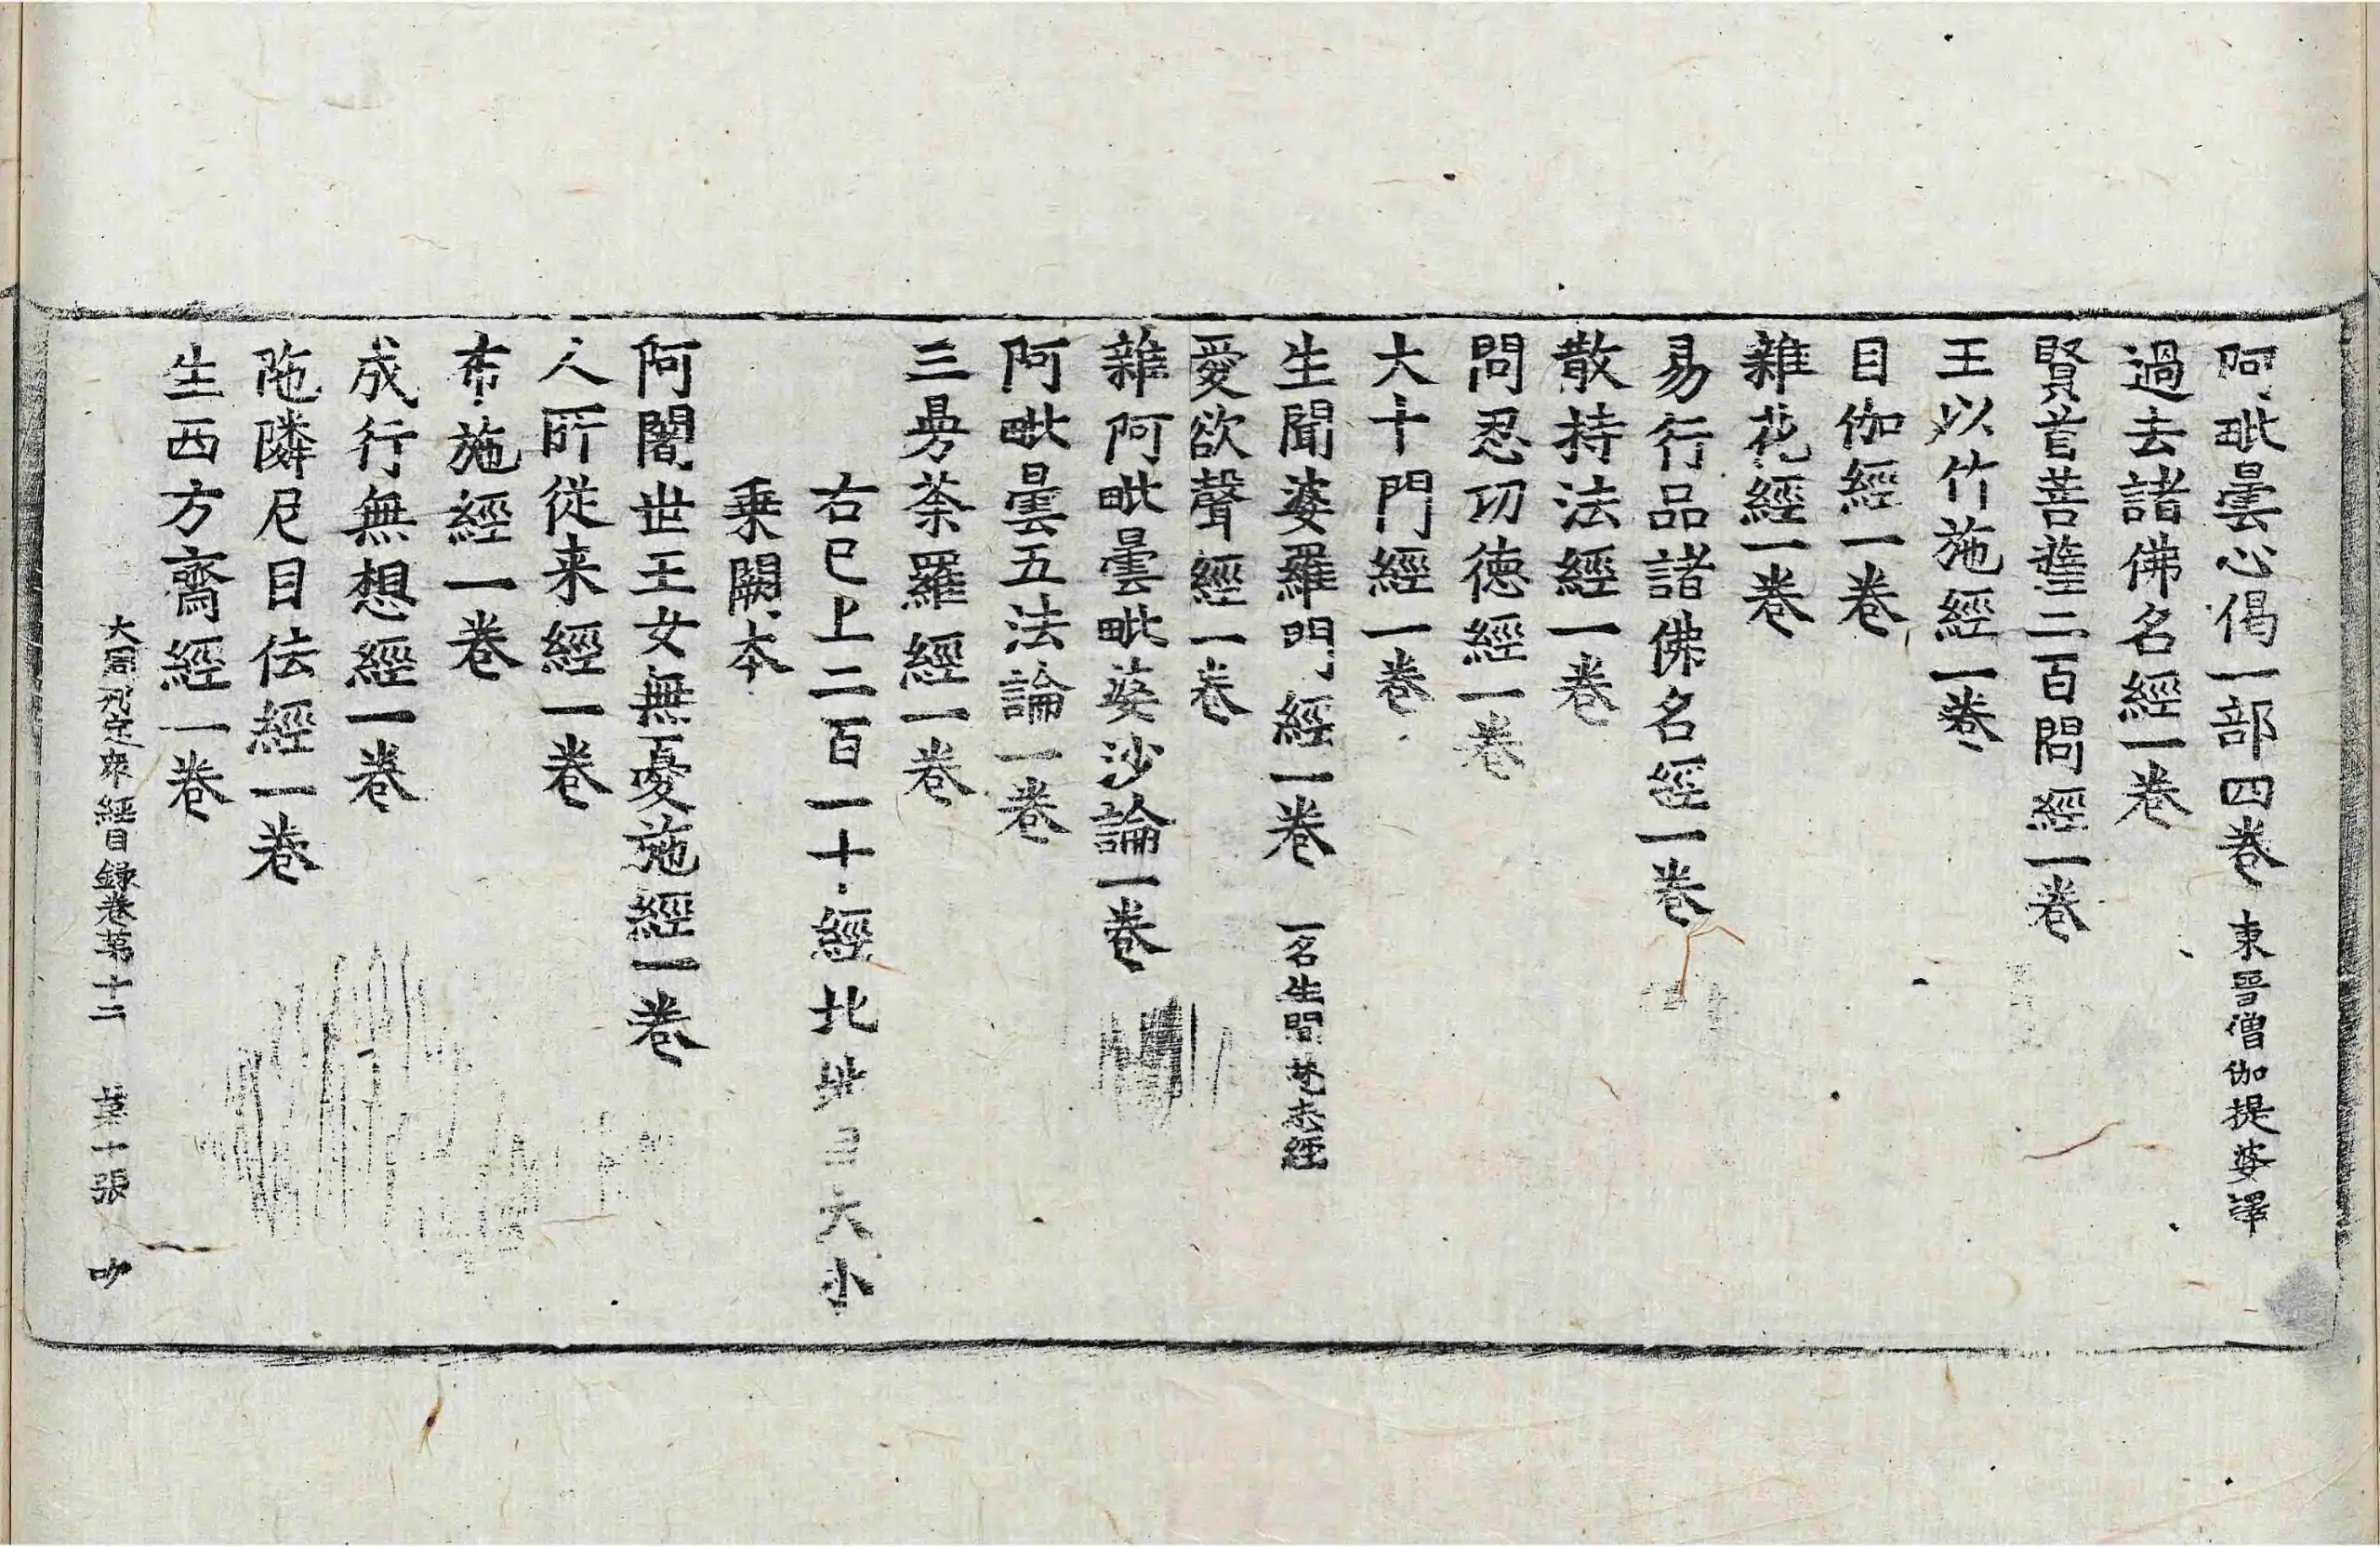 阿毗曇心偈一部四卷 東晉僧伽提婆譯
過去諸佛名經一卷
賢首菩薩二百問經一卷
王以竹施經一卷
目伽經一卷
雜花經一卷
易行品諸佛名經一卷
散持法經一卷
問忍功德經一卷
大十門經一卷
生聞婆羅門經一卷 一名生聞梵志經
愛欲聲經一卷
雜阿毗曇毗婆沙論一卷
阿毗曇五法論一卷
三㝵荼羅經一卷
右已上二百一十經 大小
乗闕本
阿闍世王女無憂施經一卷
人所從来經一卷
布施經一卷
成行無想經一卷
陁隣尼目佉經一卷
生西方齋經一卷
大周刋定衆經目錄卷第十二 第十張 吵